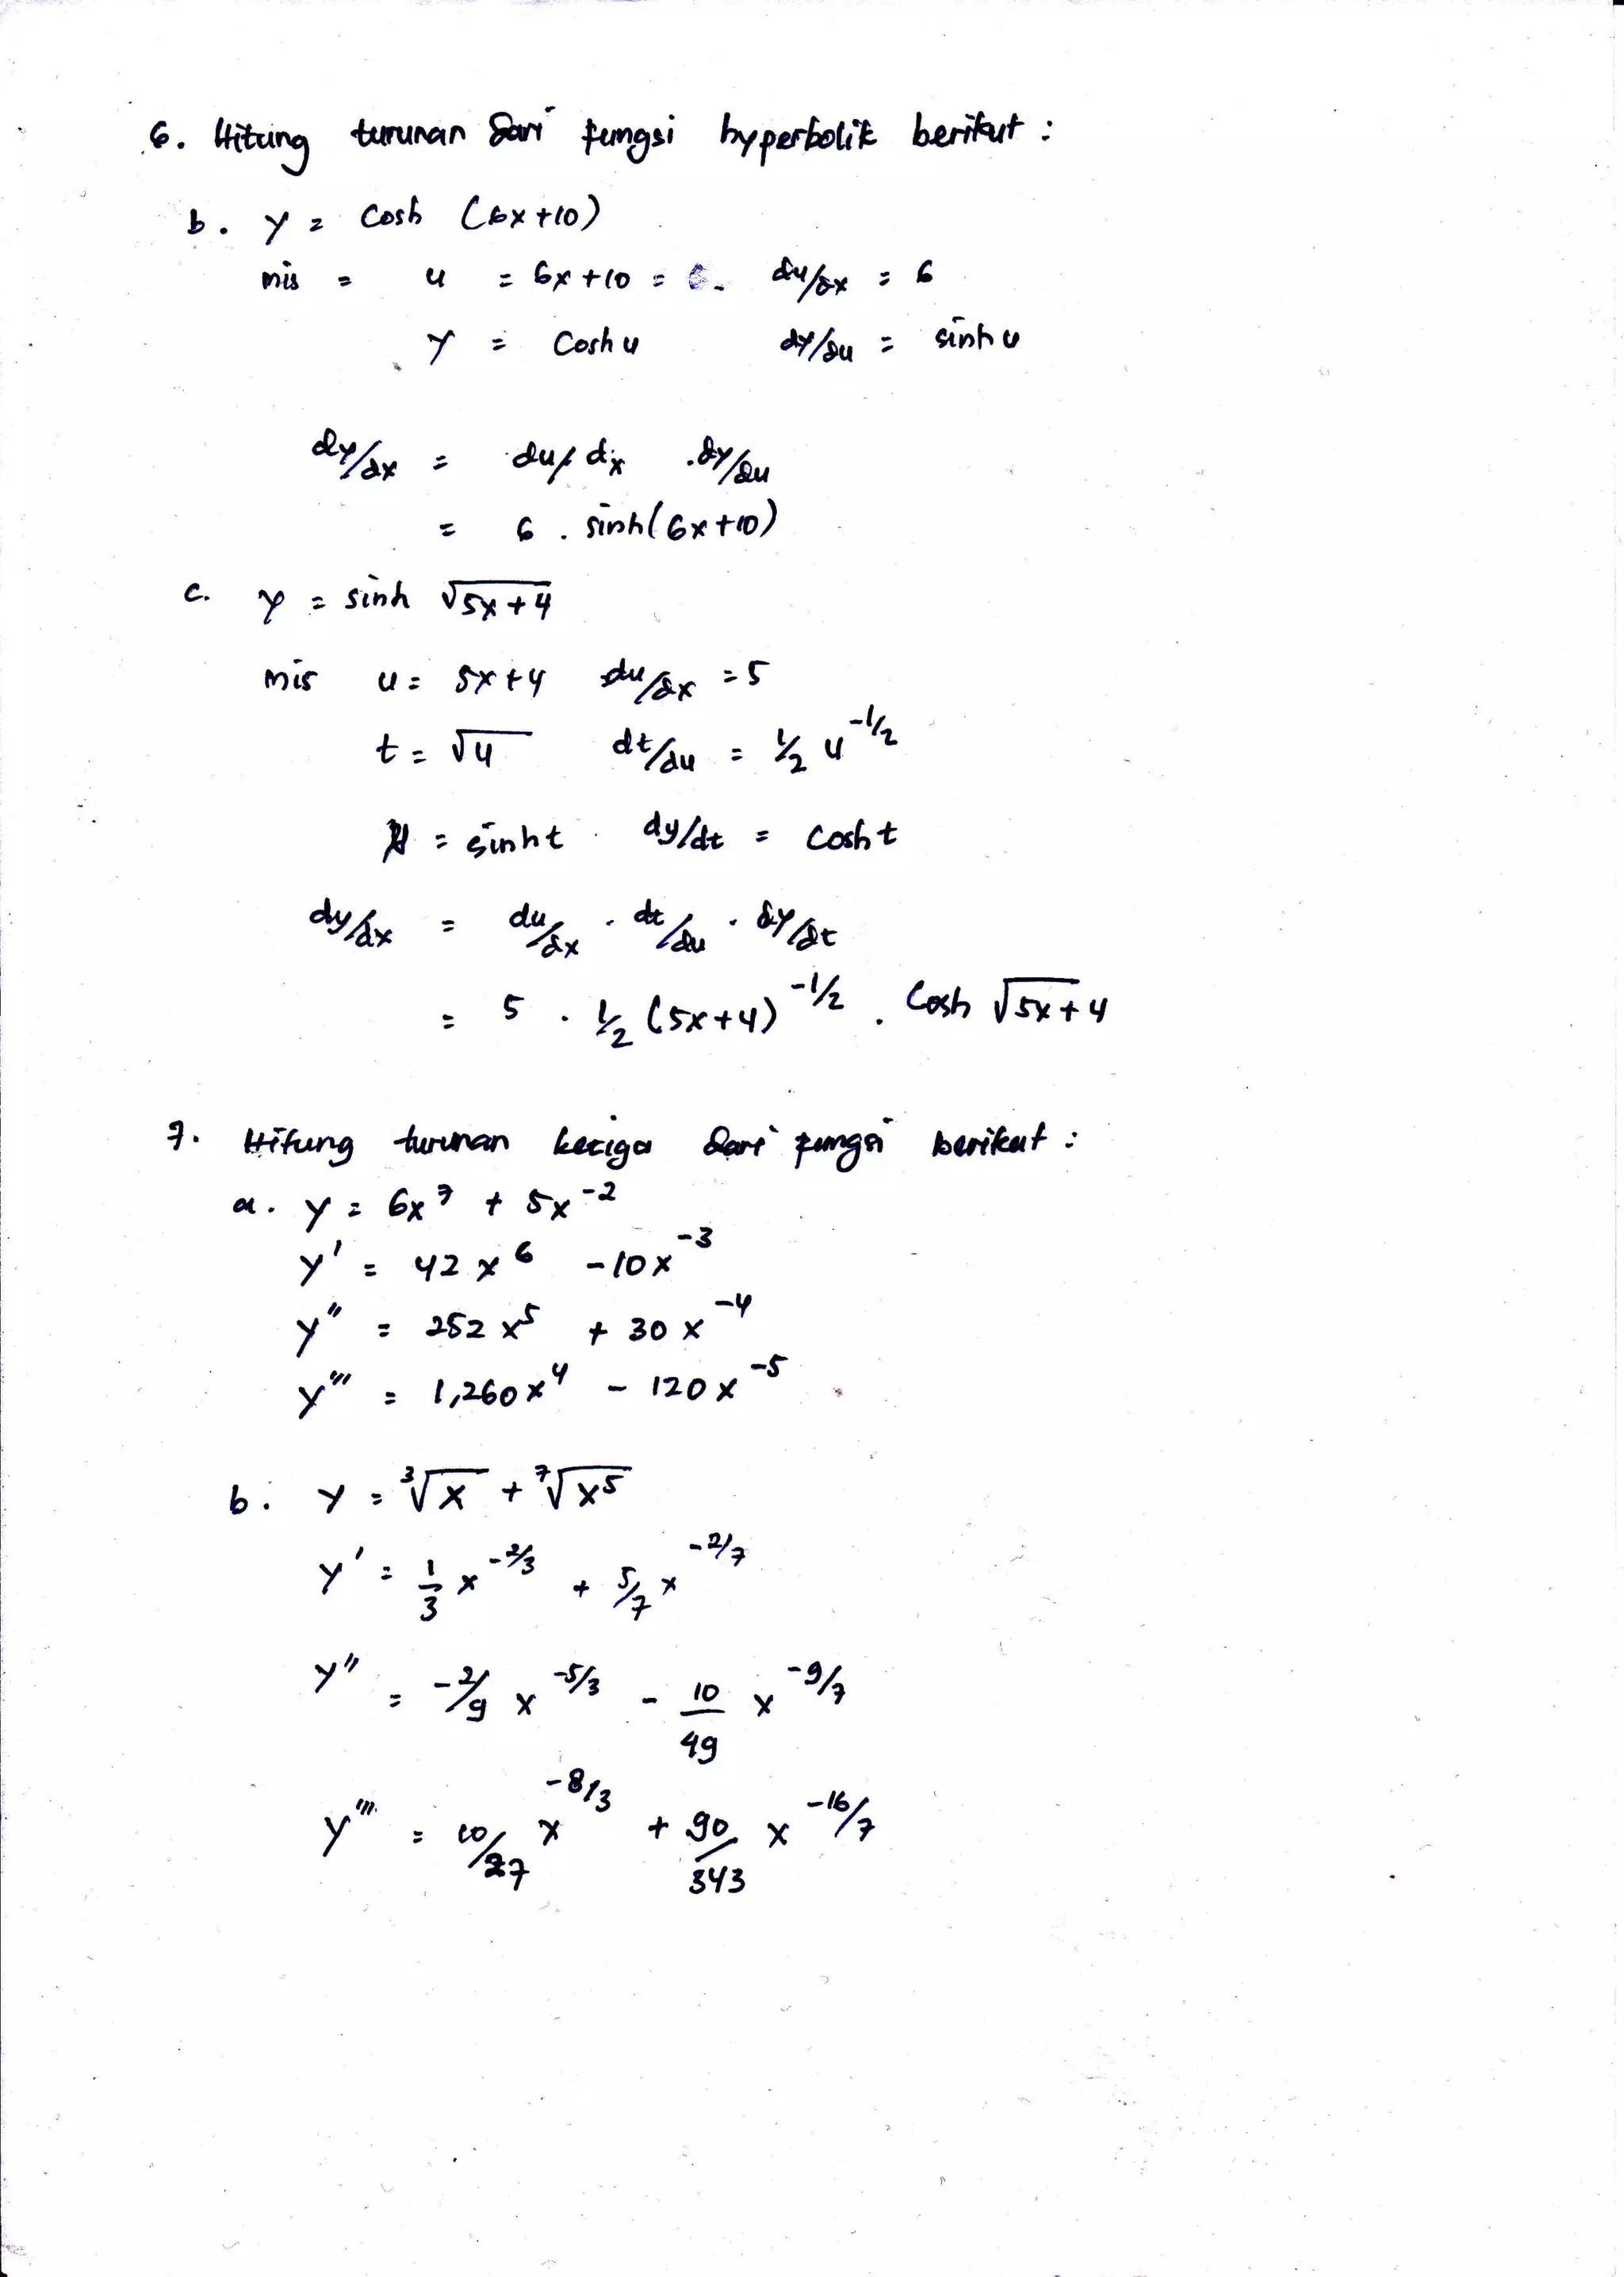 6. Hitung turunan dari fungsi hyperbolik berikut :
b. y = Cosh (6x+10)
mis = u = 6x+10 = 6. du/dx = 6
y = Cosh u dy/du = sinh u
dy/dx = du/dx . dy/du
= 6 . sinh(6x+10)
c. y = sinh √5x+4
mis u = 5x+4 du/dx = 5
t = √u dt/du = 1/2 u^-1/2
y = sinh t dy/dt = Cosh t
dy/dx = du/dx . dt/du . dy/dt
= 5 . 1/2 (5x+4)^-1/2 . Cosh √5x+4
7. Hitung turunan ketiga dari fungsi berikut :
a. y = 6x^7 + 5x^-2
y' = 42x^6 - 10x^-3
y'' = 252x^5 + 30x^-4
y''' = 1,260x^4 - 120x^-5
b. y = ³√x + ⁷√x^5
y' = 1/3 x^-2/3 + 5/7 x^-2/7
y'' = -2/9 x^-5/3 - 10/49 x^-9/7
y''' = 10/27 x^-8/3 + 90/343 x^-16/7